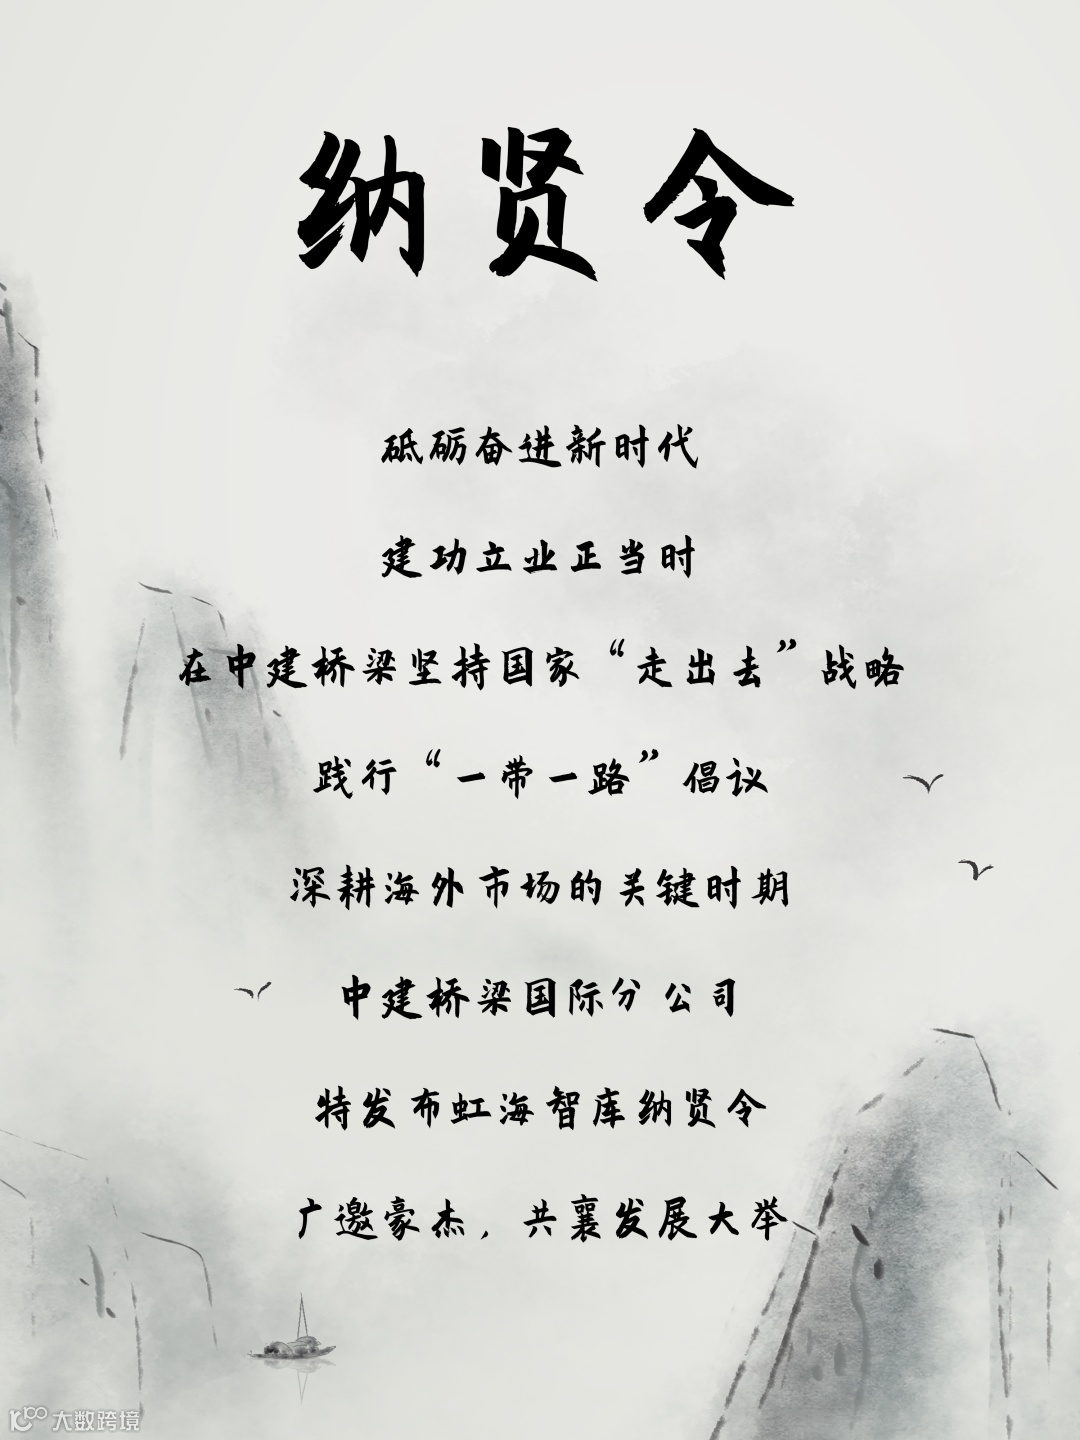 纳贤令
砥砺奋进新时代
建功立业正当时
在中建桥梁坚持国家“走出去”战略
践行“一带一路”倡议
深耕海外市场的关键时期
中建桥梁国际分公司
特发布虹海智库纳贤令
广邀豪杰，共襄发展大举
大数跨境